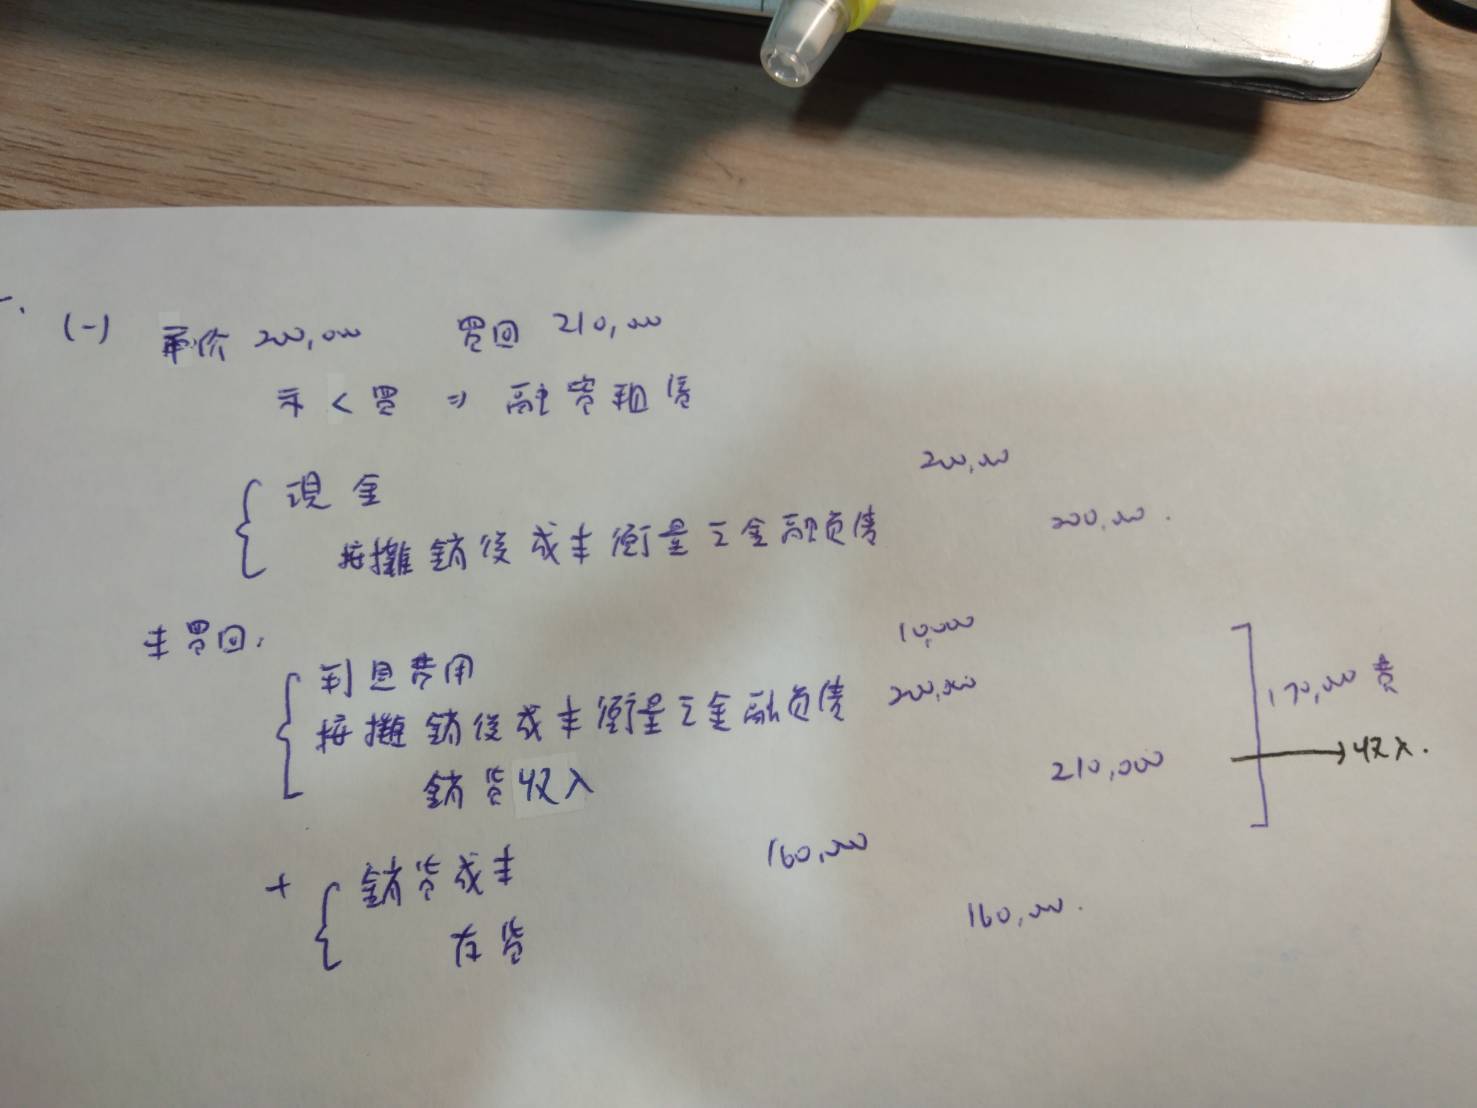 一.
(一) 原价 200,000 買回 210,000
示 < 買 ⇒ 融資租賃
現金 200,000
按攤銷後成本衡量之金融負債 200,000.
未買回:
利息費用 10,000
按攤銷後成本衡量之金融負債 200,000
銷貨收入 210,000
170,000 費
→ 收入.
+ 銷貨成本 160,000
存貨 160,000.